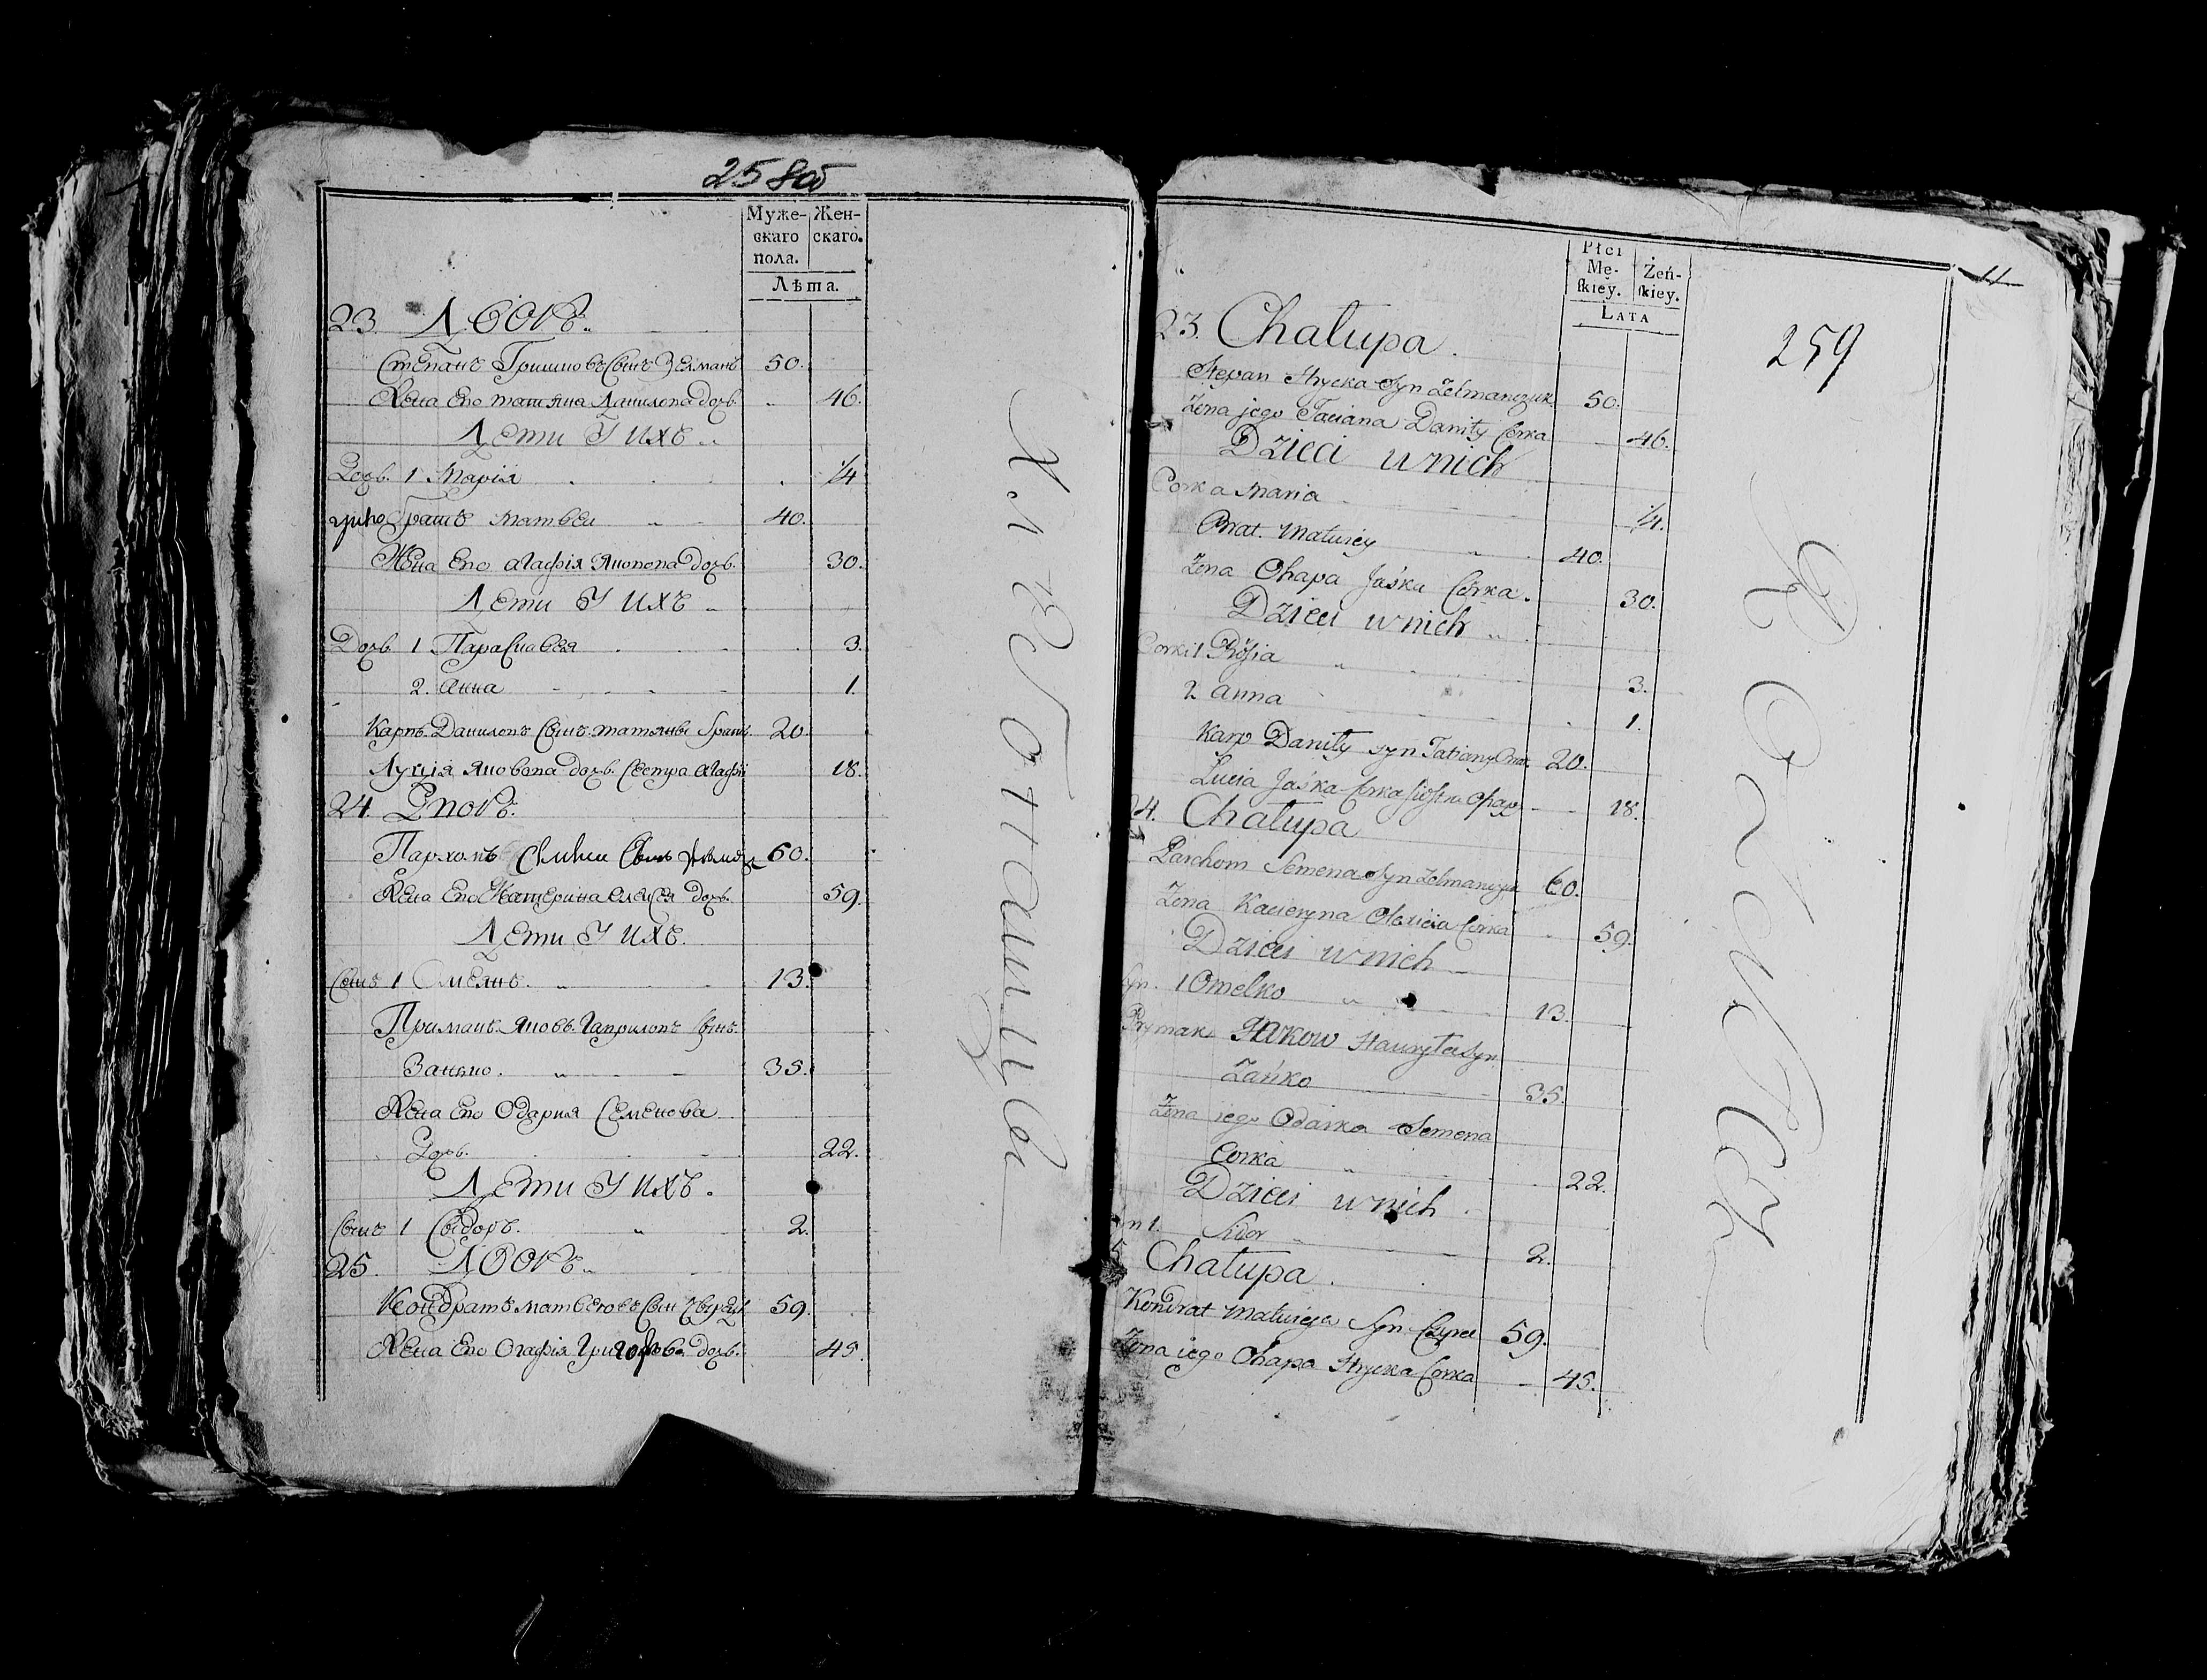 258об
Муже- Жен-
скаго скаго.
пола.
Лѣта.
23. Дворъ.
Степанъ Гришковъ Сынъ Зелманъ 50.
Жена Его татяна Данилова дочь. 46.
Дети У ихъ
Дочь. 1 Марія 1/4
Братъ Матвеи 40.
Жена Его агафія Яковова дочь. 30.
Дети У ихъ
Дочь. 1 Парасковея 3.
2. Анна 1.
Карпъ Даниловъ Сынъ татяны Братъ 20.
Луція Яковова дочь. Сестра агафіи 18.
24. Дворъ.
Пархомъ Сынъ 60.
Жена Его Катерина Елисея дочь. 59.
Дети У ихъ.
Сынъ 1 Омелянъ. 13.
Примакъ Яковъ Гавриловъ Сынъ
Занько. 35.
Жена Его Одария Семенова
Дочь. 22.
Дети У ихъ.
Сынъ 1 Сыдоръ. 2.
25. Дворъ.
Кондратъ Матвеювъ Сын 59.
Жена Его Огафія Григорова дочь. 45.
Płci
Mę- Żeń-
skiey. skiey.
LATA
11
259
23. Chałupa.
Stepan Hrycka Syn Zelmanczuk 50.
Żena jego Taciana Daniły Corka 46.
Dzieci u nich
Corka Maria 1/4.
Brat. Matwiey 40.
Żena Ohapa Jaśka Córka. 30.
Dzieci u nich
Corki 1 Prósia 3.
2 anna 1.
Karp Daniły syn Tatiany Brat. 20.
Lucia Jaśka Corka Siostra Ohapy 18.
24. Chałupa
Parchom Semena Syn Zelmanczuk 60.
Żena Kacieryna Olexieia Córka 59.
Dzieci u nich
Syn. 1 Omelko 13.
Prymak Jakow Hawryła Syn
Zańko 35.
Żena jego Odarka Semena
Corka 22.
Dzieci u nich
Syn 1. Sidor 2.
25 Chałupa.
Kondrat Matwieja Syn 59.
Żona iego Ohapa Hrycka Corka 45.